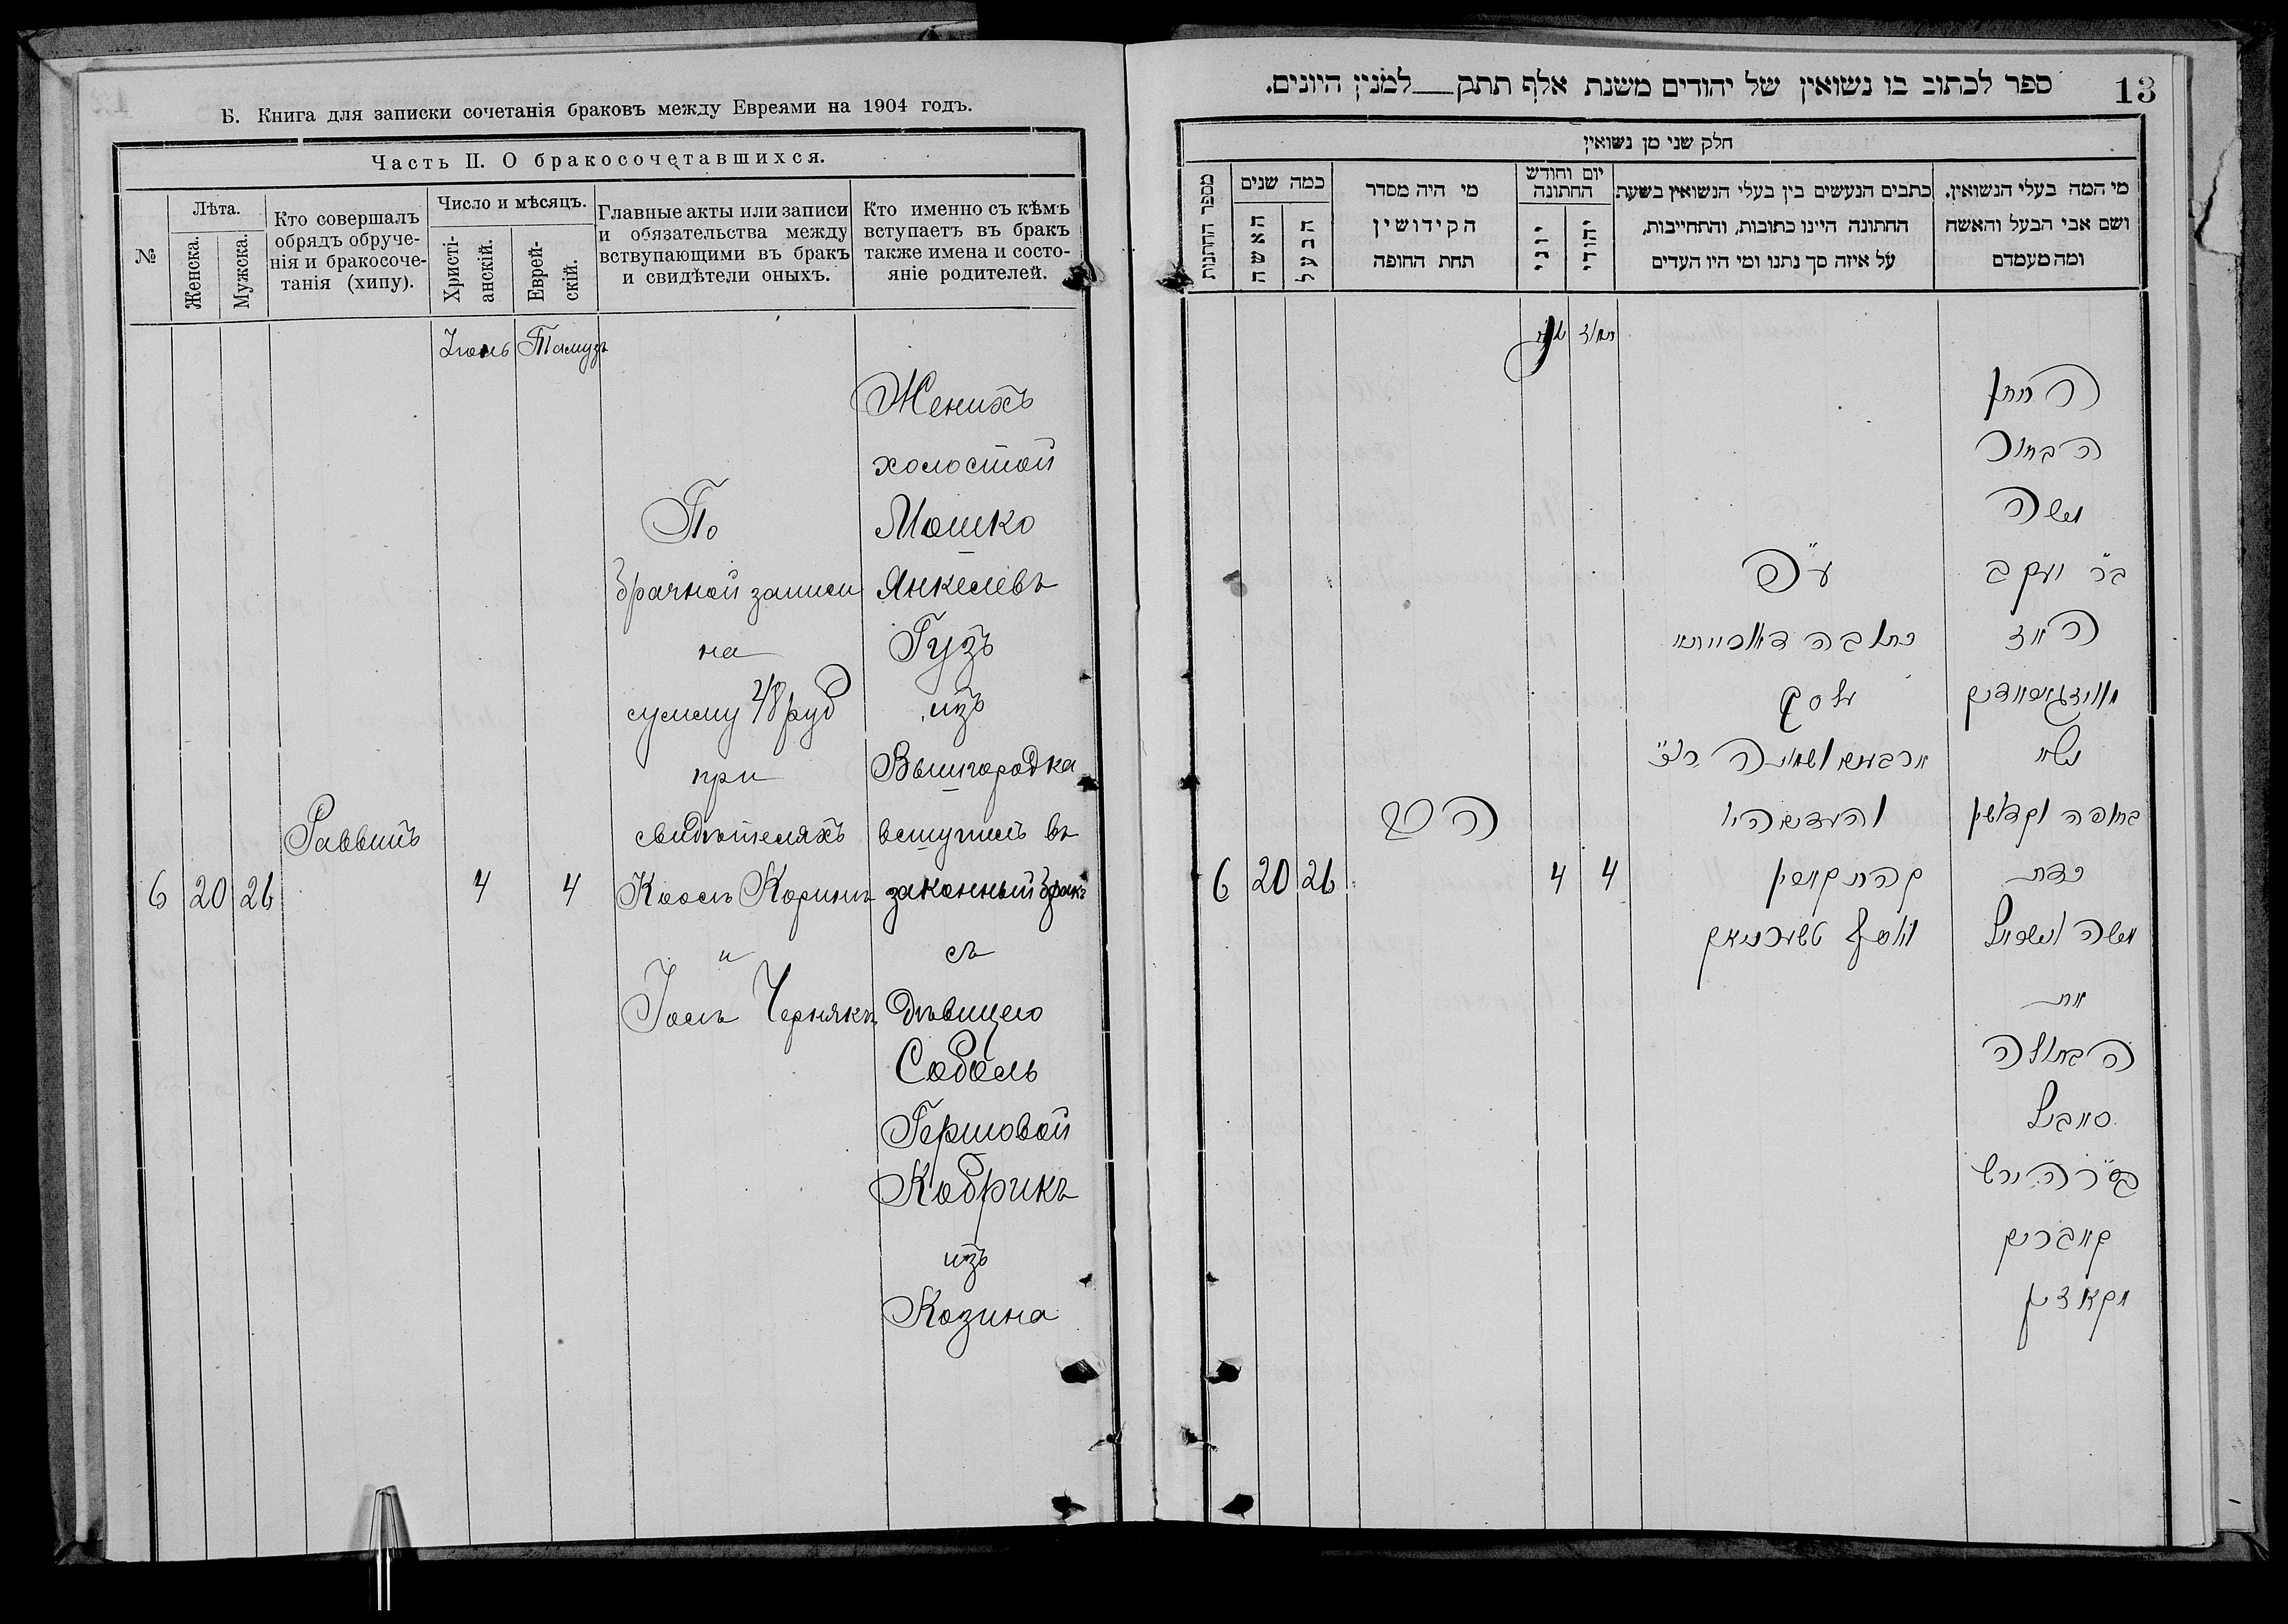 Б. Книга для записки сочетанія браковъ между Евреями на 1904 годъ.
Часть II. О бракосочетавшихся.
№
Лѣта.
Женска.
Мужска.
Кто совершалъ
обрядъ обруче-
нія и бракосоче-
танія (хипу).
Число и мѣсяцъ.
Христі-
анскій.
Еврей-
скій.
Главные акты или записи
и обязательства между
вствупающими въ бракъ
и свидѣтели оныхъ.
Кто именно съ кѣмъ
вступаетъ въ бракъ
также имена и состо-
яніе родителей.
Тамузъ
6
20
26
Раввинъ
4
4
По
брачной записи
на
сумму 48 руб
при
свидѣтеляхъ
Коринъ
и
Іосъ Чернякъ
Женихъ
холостой
Мошко
Янкелевъ
Гузъ
изъ
Вышгородка
вступилъ въ
законный бракъ
съ
дѣвицею
Соболь
Гершовой
Кобрикъ
изъ
Козина
13
ספר לכתוב בו נשואין של יהודים משנת אלף תתק—למנין היונים.
חלק שני מן נשואין
מי המה בעלי הנשואין.
ושם אבי הבעל והאשה
ומה מעמדם
כתבים הנעשים בין בעלי הנשואין בשעת
החתונה היינו כתובות, והתחייבות,
על איזה סך נתנו ומי היו העדים
יום וחודש
החתונה
יהודי
יוני
מי היה מסדר
הקידושין
תחת החופה
כמה שנים
הבעל
האשה
מספר החתונות
החתן
הבחור
משה
ב״ר יעקב
נשא
בחופה וקדושין
כדת
משה וישראל
את
הבתולה
סאביל
קאבריק
ע״פ
כתובה דאורייתא
על סך
ארבעים ושמונה
והעדים היו
4
4
26
20
6